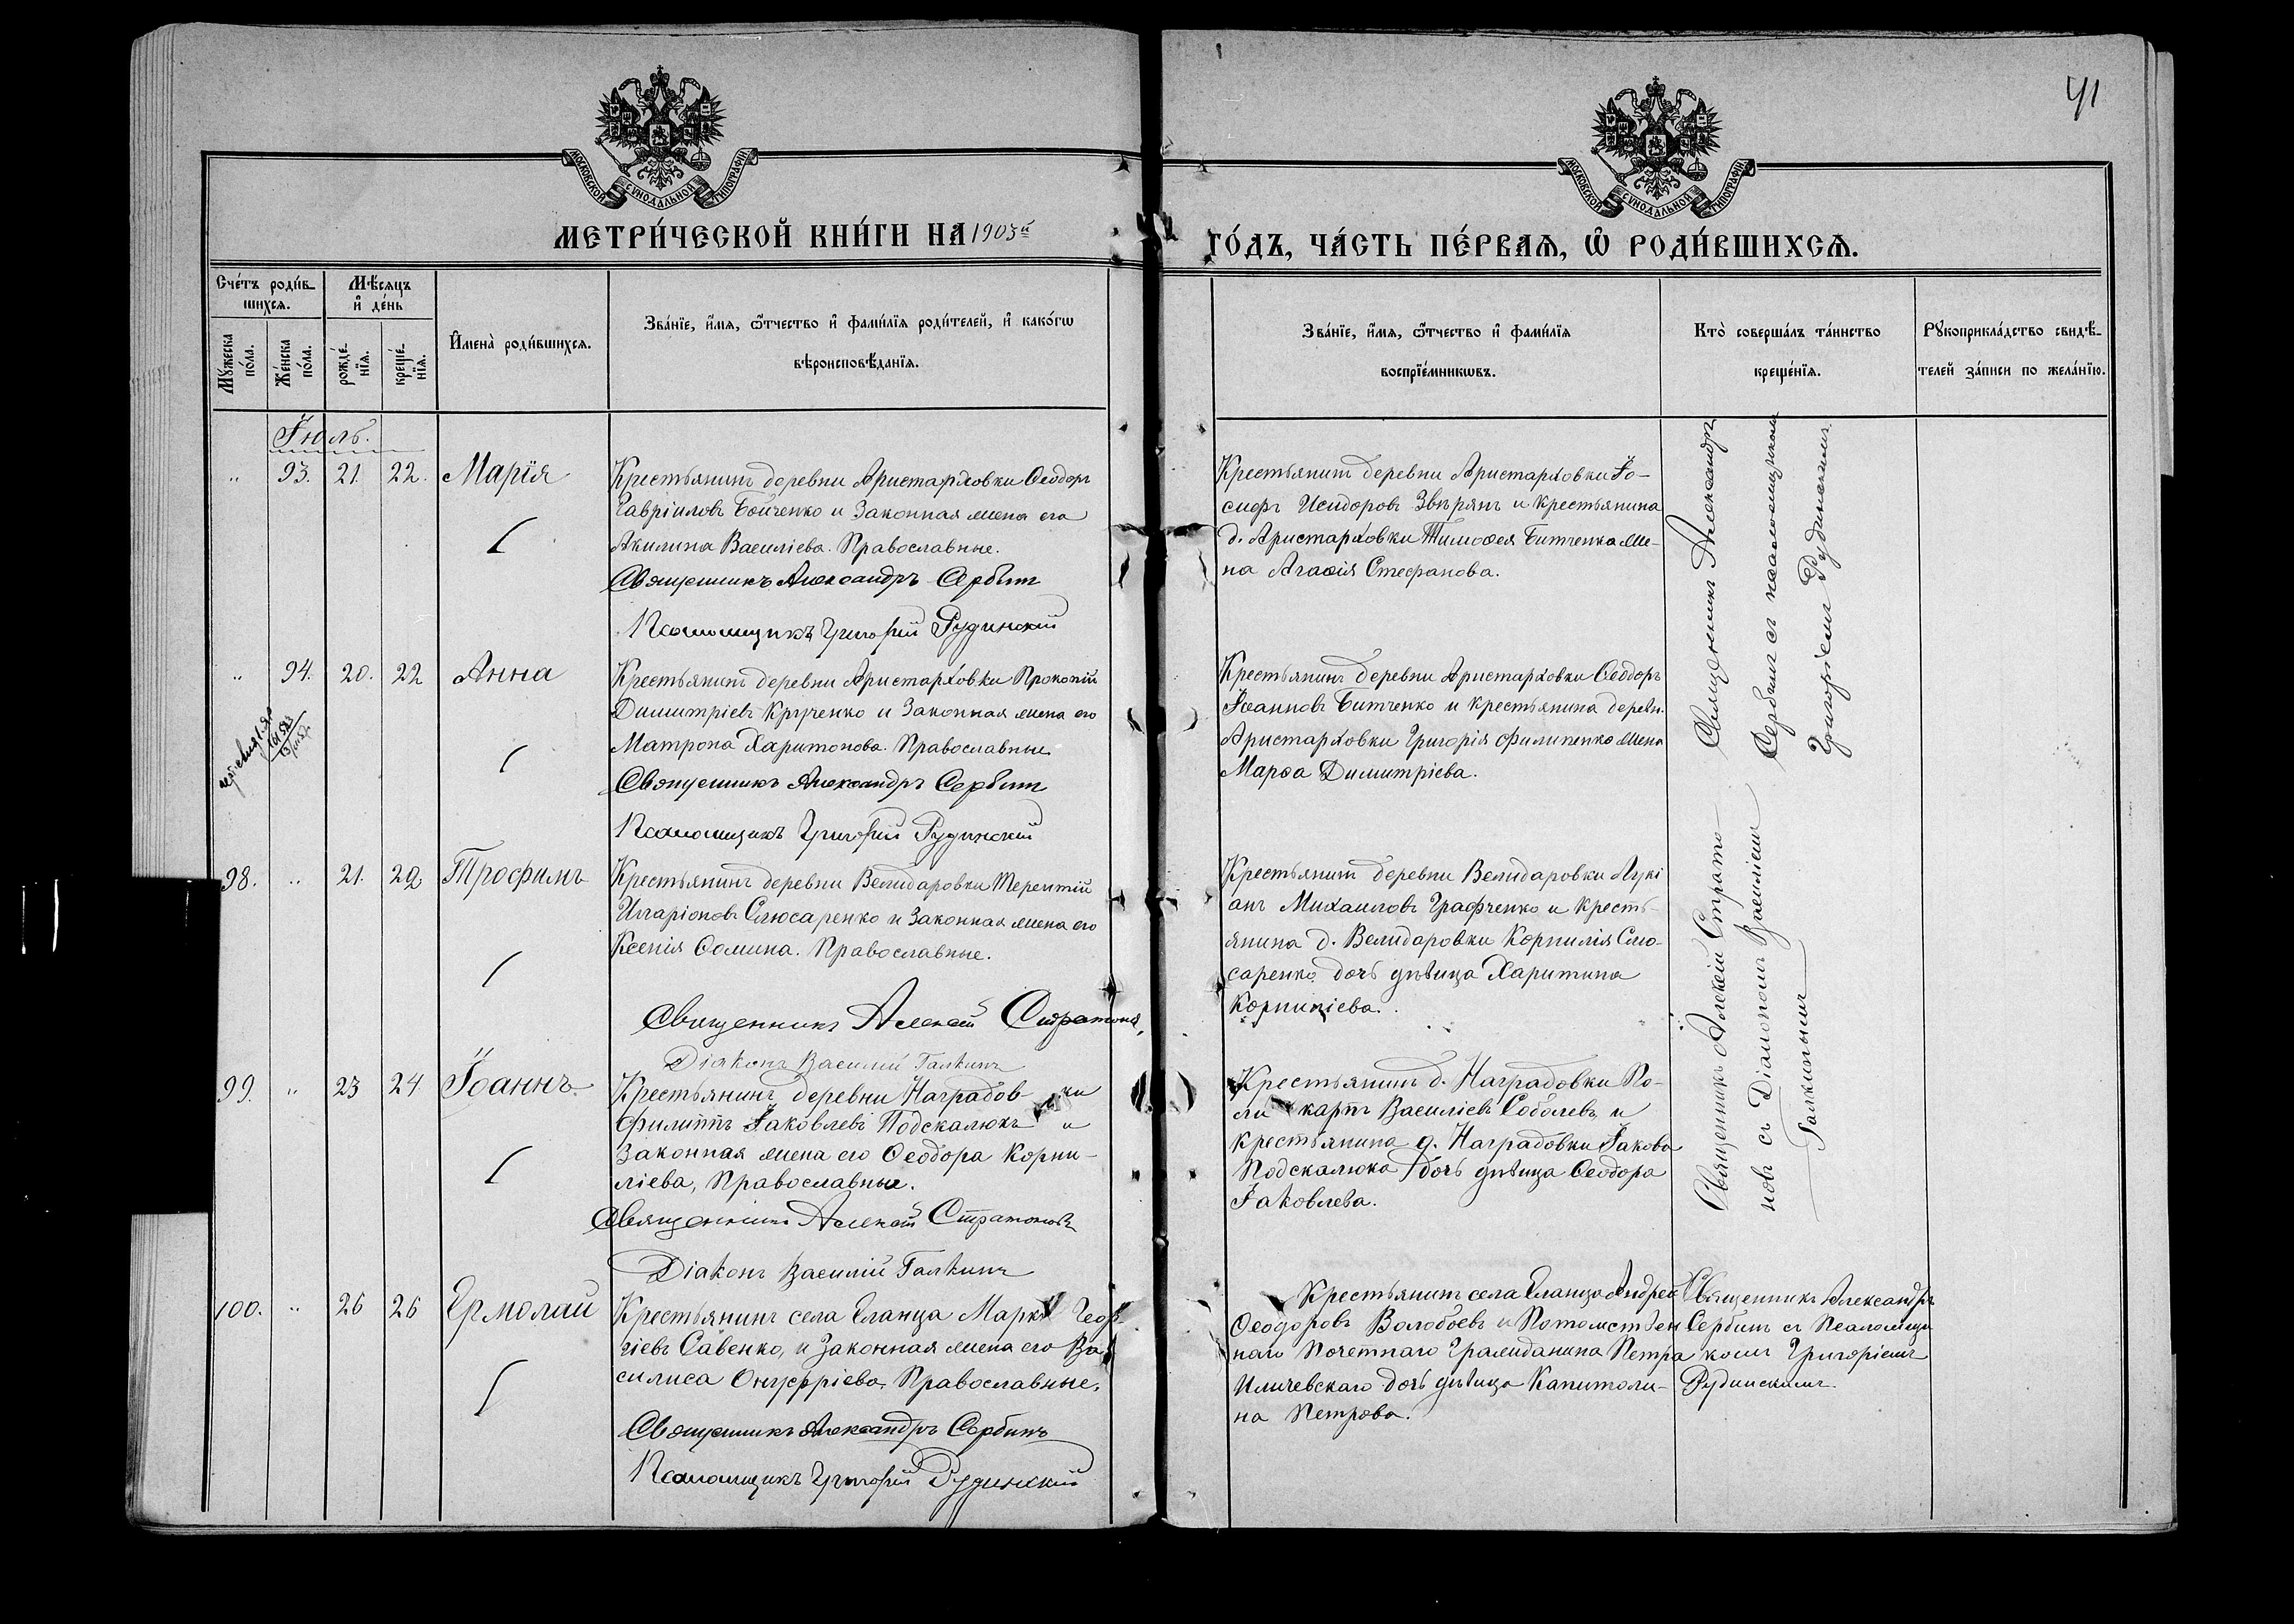 41
МОСКОВСКОЙ СУНОДАЛЬНОЙ ТИПОГРАФІИ
МОСКОВСКОЙ СУНОДАЛЬНОЙ ТИПОГРАФІИ
МЕТРИ́ЧЕСКОЙ КНИ́ГИ НА 1903й
ГО́ДЪ, ЧА́СТЬ ПЕ́РВАЯ, Ѡ РОДИ́ВШИХСѦ.
Сче́тъ роди́в-
шихсѧ.
Мꙋ́жеска по́ла.
Же́нска по́ла.
Мѣ́сѧцъ
и҆ де́нь
рожде́-
нїѧ.
креще́-
нїѧ.
И҆мена̀ роди́вшихсѧ.
Зва́нїе, и҆́мѧ, ѻ҆́тчество и҆ фами́лїѧ роди́телей, и҆ како́гѡ
вѣроисповѣ́данїѧ.
Зва́нїе, и҆́мѧ, ѻ҆́тчество и҆ фами́лїѧ
воспрїе́мникѡвъ.
Кто̀ соверша́лъ та́инство
креще́нїѧ.
Рꙋкоприкла́дство свидѣ́-
телей за́писи по жела́нїю.
Іюль.
" 93. 21. 22. Марія
Крестьянинъ деревни Аристарховки Ѳеодоръ
Гавріиловъ Бойченко и законная жена его
Акилина Василіева. Православные.
Священникъ Александръ Сербинъ
Псаломщикъ Григорій Рудинскій
Крестьянинъ деревни Аристарховки Іо-
сифъ Исидоровъ Звѣрянъ и крестьянина
д. Аристарховки Тимоѳея Битченка же-
на Агаѳія Стефанова.
Священникъ Александръ
Сербинъ съ псаломщикомъ
Григоріемъ Рудинскимъ.
" 94. 20. 22 Анна
Крестьянинъ деревни Аристарховки Прокопій
Димитріевъ Крученко и законная жена его
Матрона Харитонова. Православные
Священникъ Александръ Сербинъ
Псаломщикъ Григорій Рудинскій
Крестьянинъ деревни Аристарховки Ѳеодоръ
Іоанновъ Битченко и крестьянина деревн.
Аристарховки Григорія Филипенко жена
Марѳа Димитріева.
98. " 21. 22. Трофимъ
Крестьянинъ деревни Велидаровки Терентій
Иларіоновъ Слюсаренко и законная жена его
Ксенія Ѳомина. Православные.
Священникъ Алексѣй Стратоновъ
Діаконъ Василій Галкинъ
Крестьянинъ деревни Велидаровки Лукі
анъ Михаиловъ Графченко и кресть-
янина д. Велидаровки Корнилія Слю-
саренко дочь дѣвица Харитина
Корниліева.
Священникъ Алексѣй Страто-
новъ съ Діакономъ Василіемъ
Галкинымъ
99. " 23 24 Іоаннъ
Крестьянинъ деревни Наградов-ки
Филиппъ Іаковлевъ Подскалюкъ и
законная жена его Ѳеодора Корни-
ліева, Православные.
Священникъ Алексѣй Стратоновъ
Діаконъ Василій Галкинъ
Крестьянинъ д. Наградовки По-
ли карпъ Василіевъ Соболевъ, и
крестьянина д. Наградовки Іакова
Подскалюка дочь дѣвица Ѳеодора
Іаковлева.
100. " 26 26 Ермолай
Крестьянинъ села Еланца Маркъ Геор-
гіевъ Савенко, и законная жена его Ва
силиса Онуфріева, Православные.
Священникъ Александръ Сербинъ
Псаломщикъ Григорій Рудинскій
Крестьянинъ села Еланца Андрей
Ѳеодоровъ Волобоевъ и Потомствен
наго Почетнаго Гражданина Петра
Иличевскаго дочь дѣвица Капитоли-
на Петрова.
Священникъ Александръ
Сербинъ съ Псаломщи
комъ Григоріемъ
Рудинскимъ.